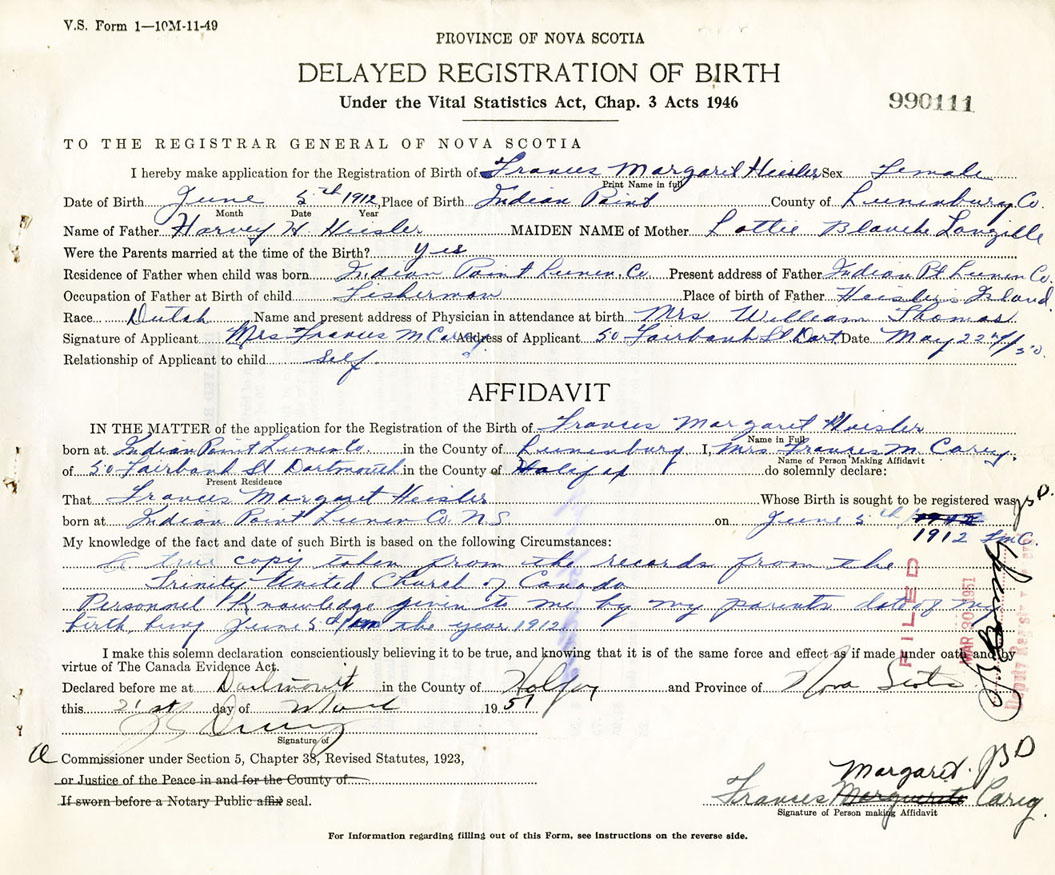 V.S. Form 1—10M-11-49
PROVINCE OF NOVA SCOTIA
DELAYED REGISTRATION OF BIRTH
Under the Vital Statistics Act, Chap. 3 Acts 1946
990111
TO THE REGISTRAR GENERAL OF NOVA SCOTIA
I hereby make application for the Registration of Birth of Frances Margaret Heisler Sex Female
Print Name in full
Date of Birth June 5th 1912, Place of Birth Indian Point County of Lunenburg Co.
Month Date Year
Name of Father Harvey W. Heisler MAIDEN NAME of Mother Lottie Blanche Langille
Were the Parents married at the time of the Birth? Yes
Residence of Father when child was born Indian Point Lunen. Co Present address of Father Indian Pt Lunen Co.
Occupation of Father at Birth of child Fisherman Place of birth of Father Heisler's Island
Race Dutch Name and present address of Physician in attendance at birth Mrs William Thomas.
Signature of Applicant Mrs Frances M Carey Address of Applicant 50 Fairbank St Dart Date May 22nd/50.
Relationship of Applicant to child Self.
AFFIDAVIT
IN THE MATTER of the application for the Registration of the Birth of Frances Margaret Heisler
Name in Full
born at Indian Point Lunen Co. in the County of Lunenburg I, Mrs Frances M. Carey.
Name of Person Making Affidavit
of 50 Fairbank St Dartmouth in the County of Halafax do solemnly declare:
Present Residence
That Frances Margaret Heisler Whose Birth is sought to be registered was
born at Indian Point Lunen Co. N.S on June 5th 1912
1912 FmC.
My knowledge of the fact and date of such Birth is based on the following Circumstances:
A true copy taken from the records from the
Trinity United Church of Canada
Personnel Knowledge given to me by my parents date of my
birth being June 5th in the year 1912.
I make this solemn declaration conscientiously believing it to be true, and knowing that it is of the same force and effect as if made under oath and by
virtue of The Canada Evidence Act.
Declared before me at Dartmouth in the County of Halifax and Province of Nova Scotia
this 21st day of March 1951
Signature of
A Commissioner under Section 5, Chapter 38, Revised Statutes, 1923,
or Justice of the Peace in and for the County of
If sworn before a Notary Public affix seal.
Margaret. JBD
Frances Marguerite Carey.
Signature of Person making Affidavit
For Information regarding filling out of this Form, see instructions on the reverse side.
FILED
MAR 30 1951